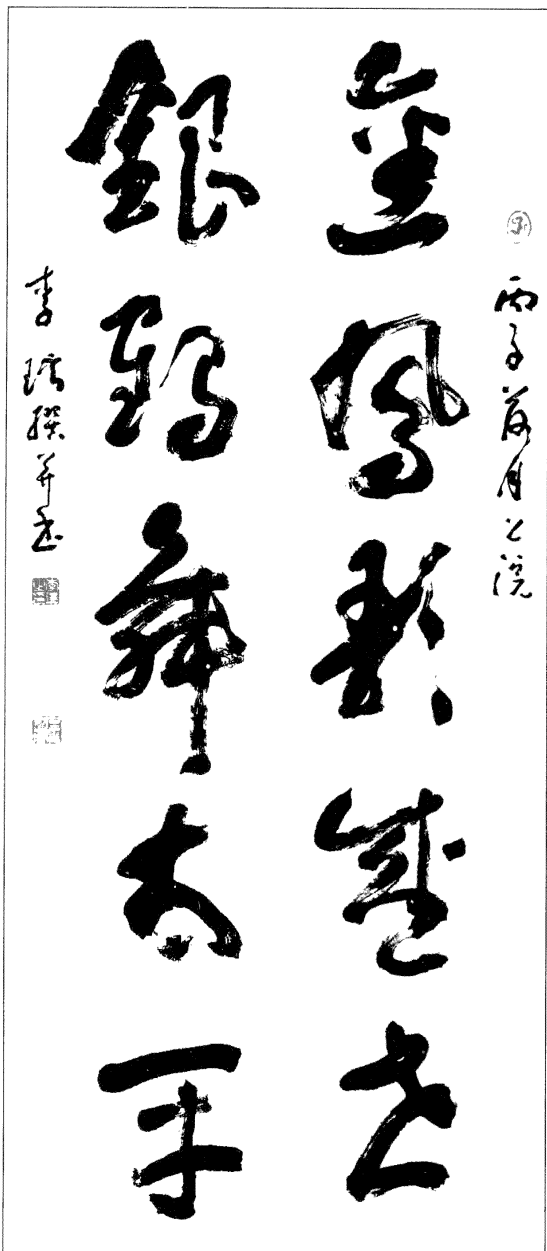 丙子月上浣
金鳳歌盛世
銀鶴舞太平
李撰并书